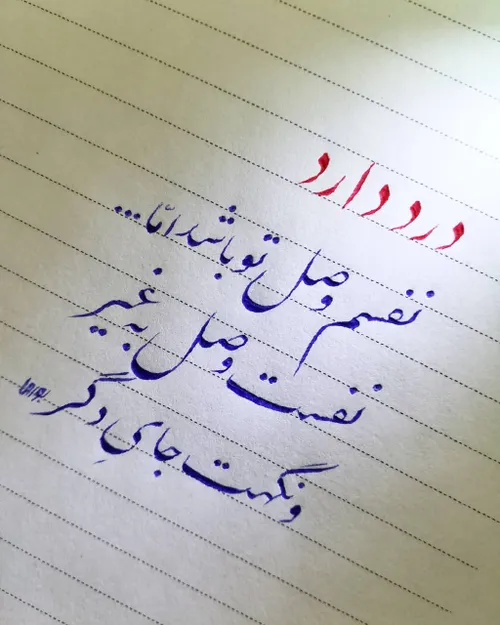 درد دارد
نفسم وصل تو باشد امّا...
نفست وصل به غیر
و نگهت جایِ دگر